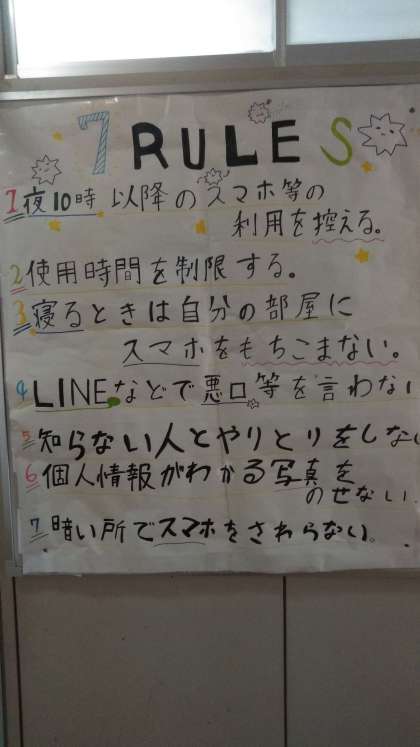 7 RULES
1 夜10時以降のスマホ等の
利用を控える。
2 使用時間を制限する。
3 寝るときは自分の部屋に
スマホをもちこまない。
4 LINEなどで悪口等を言わない
5 知らない人とやりとりをしない
6 個人情報がわかる写真を
のせない
7 暗い所でスマホをさわらない。